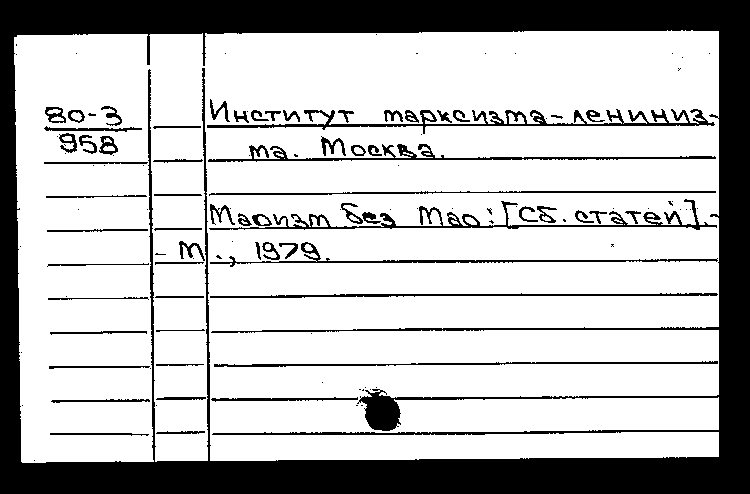 80-3 Институт марксизма-лениниз-
958 ма. Москва.
Маоизм без Мао: [Сб. статей].-
- М., 1979.